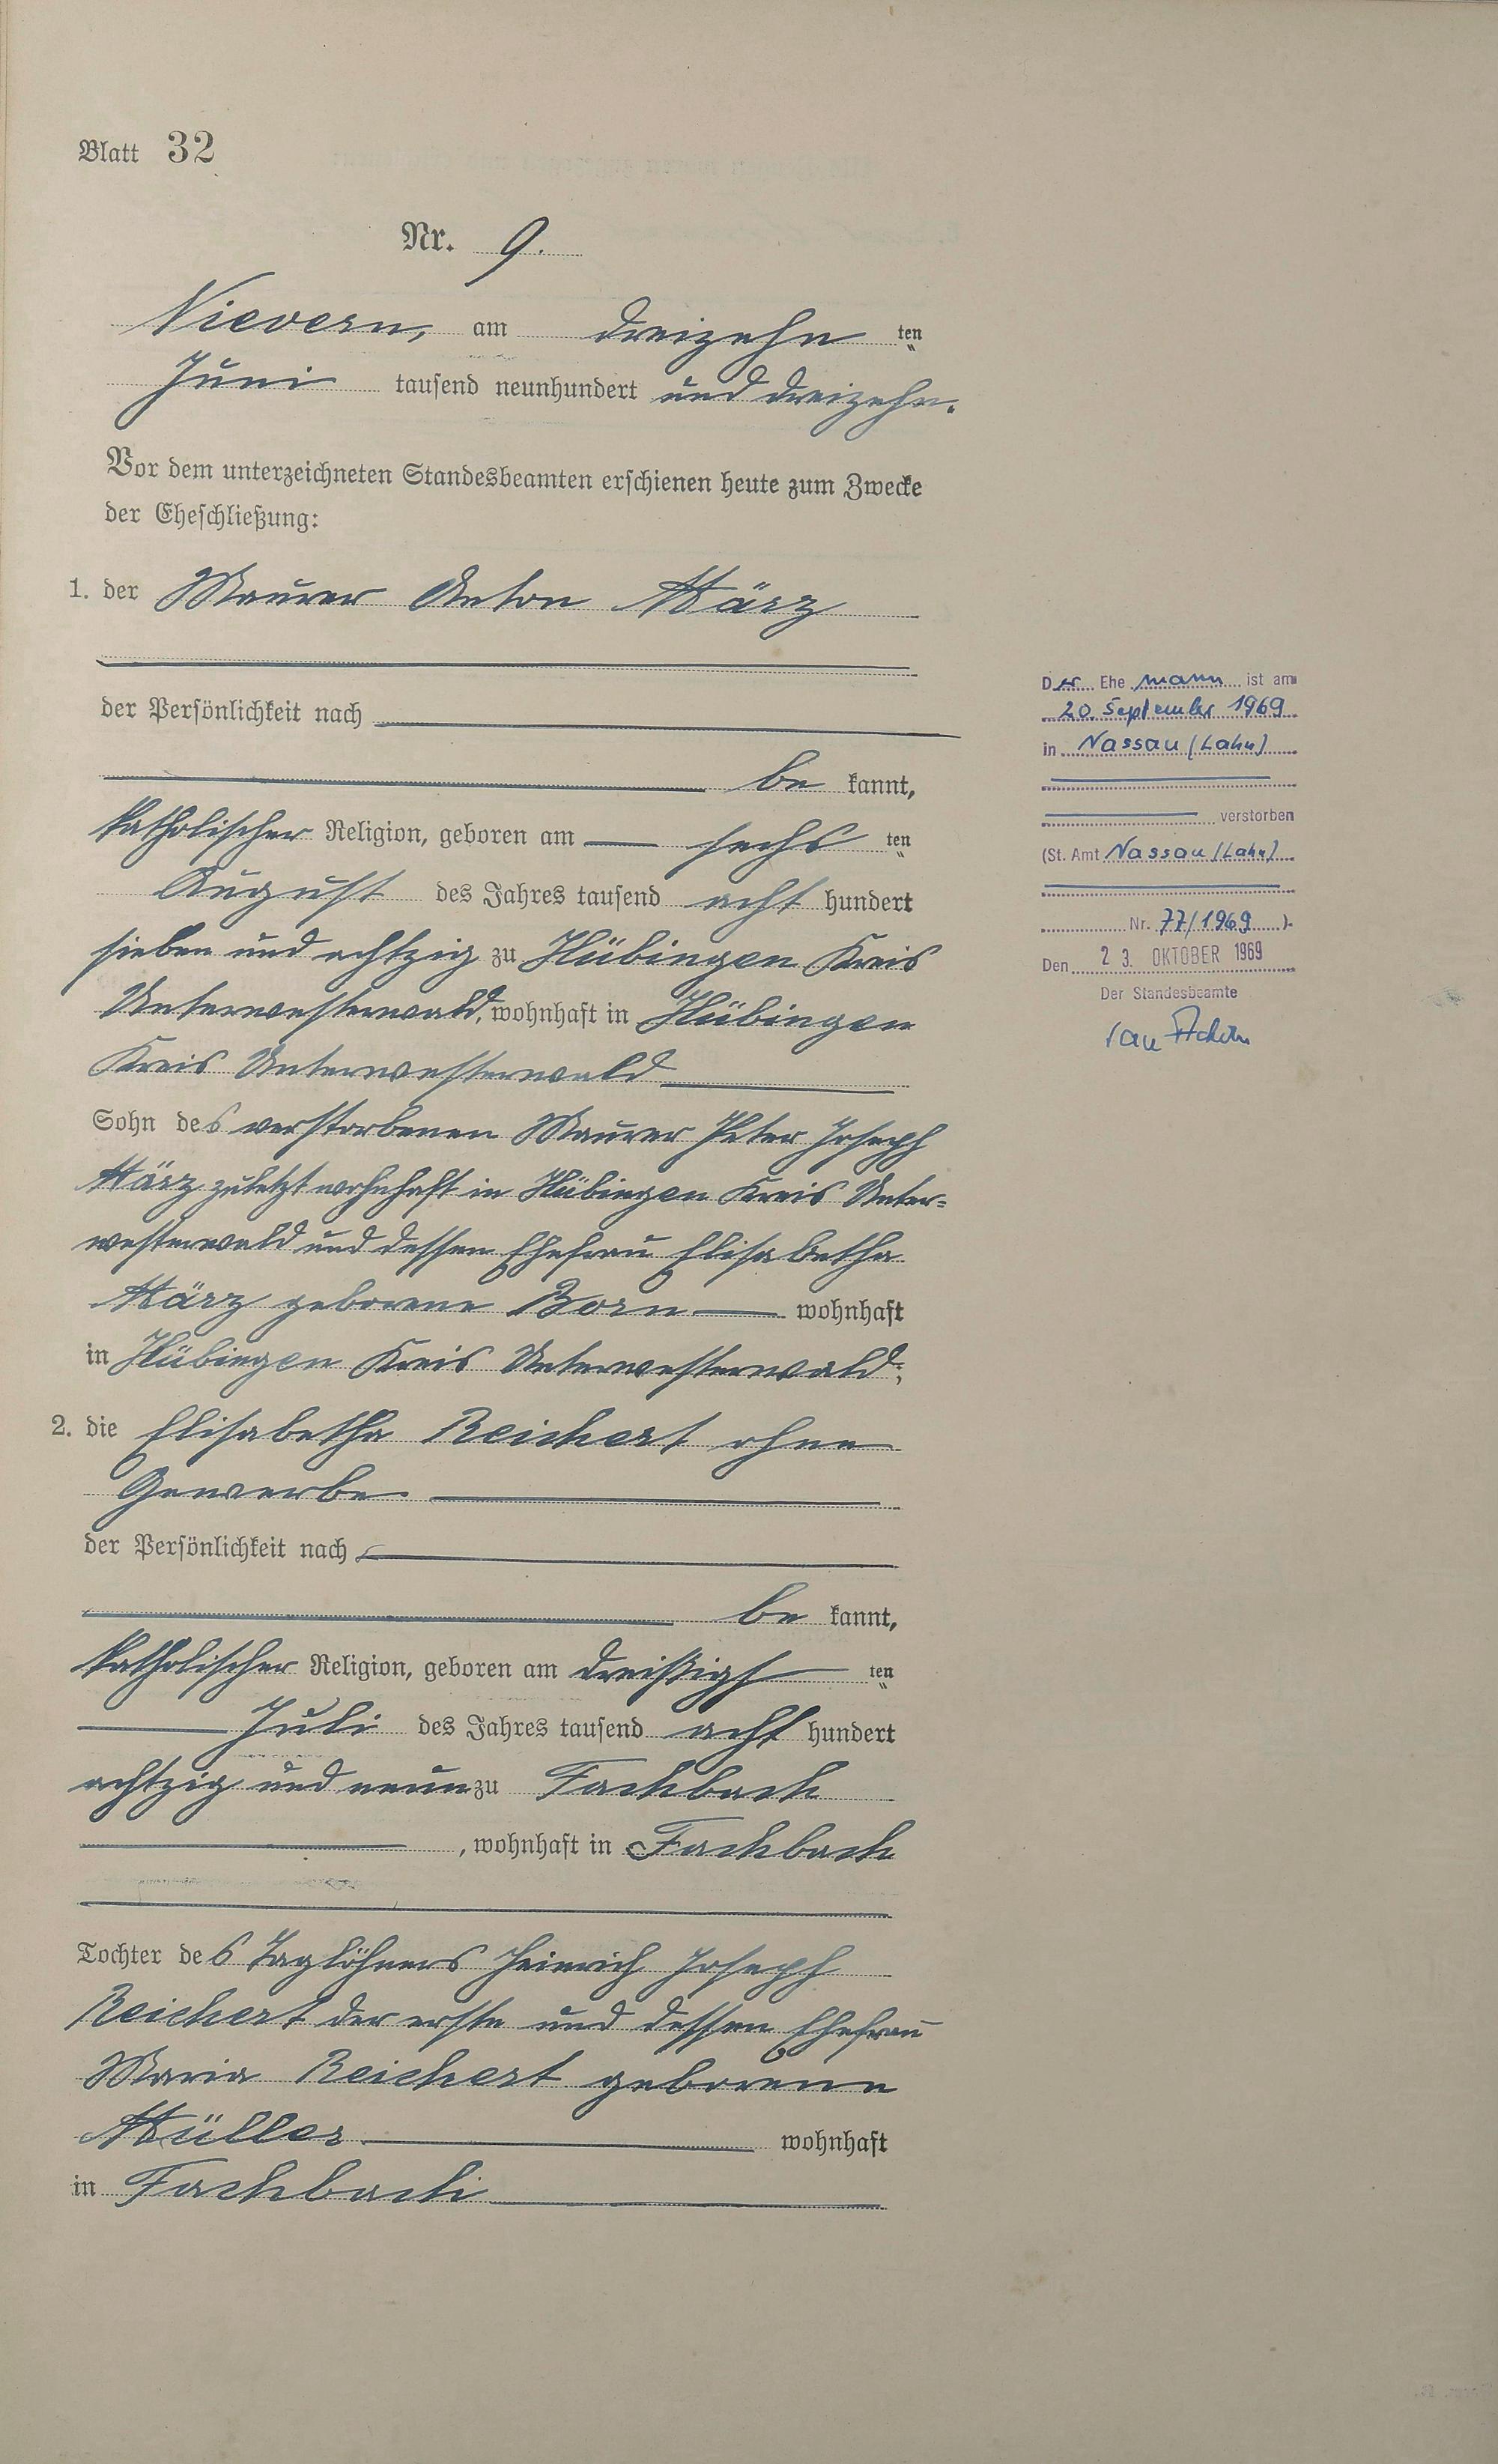 Blatt 32
Nr. 9.
Nievern, am dreizehn ten
Juni tausend neunhundert und dreizehn.
Vor dem unterzeichneten Standesbeamten erschienen heute zum Zwecke
der Eheschließung:
1. der Maurer Anton März
der Persönlichkeit nach
be kannt,
katholischer Religion, geboren am sechs ten
August des Jahres tausend acht hundert
sieben und achtzig zu Hübingen Kreis
Unterwesterwald, wohnhaft in Hübingen
Kreis Unterwesterwald
Sohn des verstorbenen Maurer Peter Joseph
März zuletzt wohnhaft in Hübingen Kreis Unter-
westerwald und dessen Ehefrau Elisabetha
März geborene Born wohnhaft
in Hübingen Kreis Unterwesterwald;
2. die Elisabetha Reichert ohne
Gewerbe
der Persönlichkeit nach
be kannt,
katholischer Religion, geboren am dreißigs ten
Juli des Jahres tausend acht hundert
achtzig und neun zu Fachbach
, wohnhaft in Fachbach
Tochter des Taglöhners Heinrich Joseph
Reichert der erste und dessen Ehefrau
Maria Reichert geborene
Müller wohnhaft
in Fachbach
Der Ehe mann ist am
20. September 1969
in Nassau (Lahn)
verstorben
(St. Amt Nassau (Lahn)
Nr. 77/1969 )
Den 23. OKTOBER 1969
Der Standesbeamte